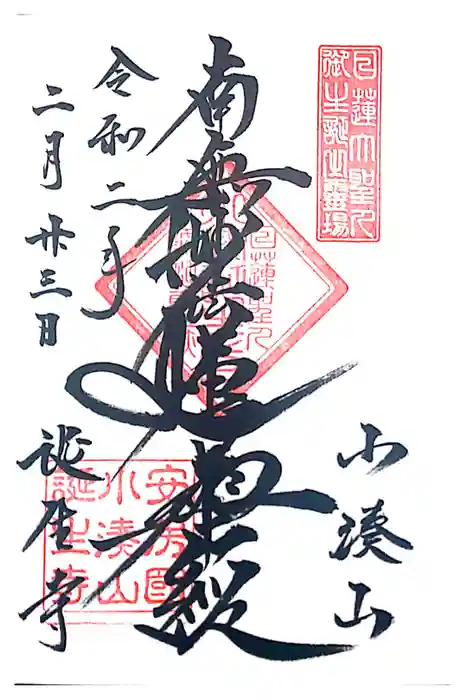 日蓮大聖人
御生誕之霊場
小湊山
南無妙法蓮華経
令和二年
二月廿三日
誕生寺
安房國
小湊山
誕生寺